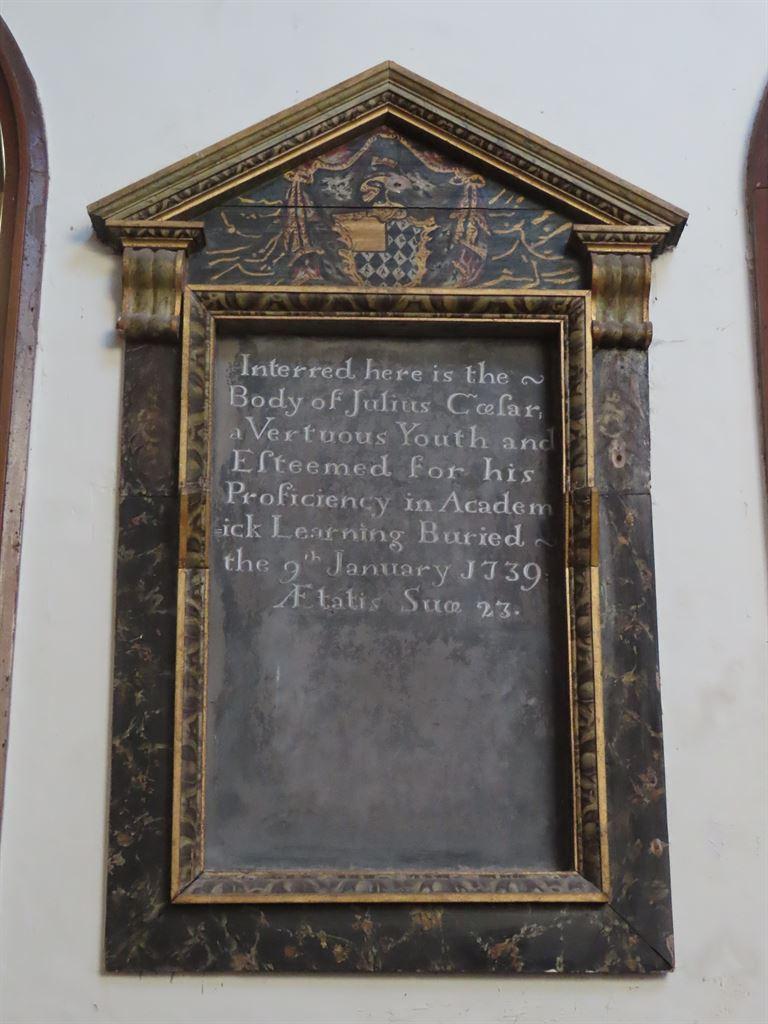 Interred here is the ~
Body of Julius Cæſar,
a Vertuous Youth and
Eſteemed for his
Proficiency in Academ
=ick Learning Buried ~
the 9th January 1739
Ætatis Suæ 23.